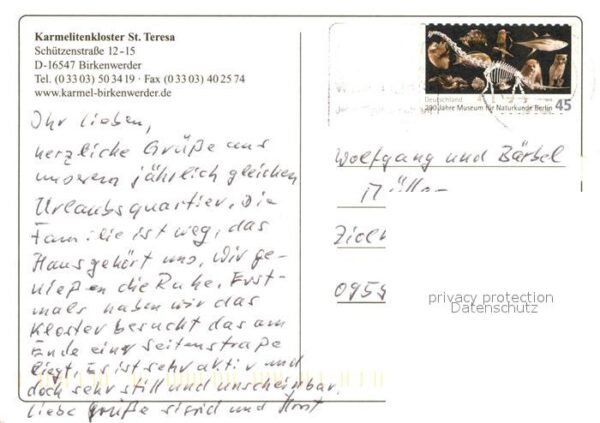 Karmelitenkloster St. Teresa
Schützenstraße 12–15
D-16547 Birkenwerder
Tel. (0 33 03) 50 34 19 · Fax (0 33 03) 40 25 74
www.karmel-birkenwerder.de
Ihr Lieben,
herzliche Grüße aus
unserem jährlich gleichen
Urlaubsquartier. Die
Familie ist weg, das
Haus gehört uns. Wir ge-
nießen die Ruhe. Erst-
mals haben wir das
Kloster besucht das am
Ende einer Seitenstraße
liegt. Es ist sehr aktiv und
doch sehr still und unscheinbar.
Liebe Grüße Sigrid und Horst
Deutschland
200 Jahre Museum für Naturkunde Berlin 45
Wolfgang und Bärbel
0959
privacy protection
Datenschutz